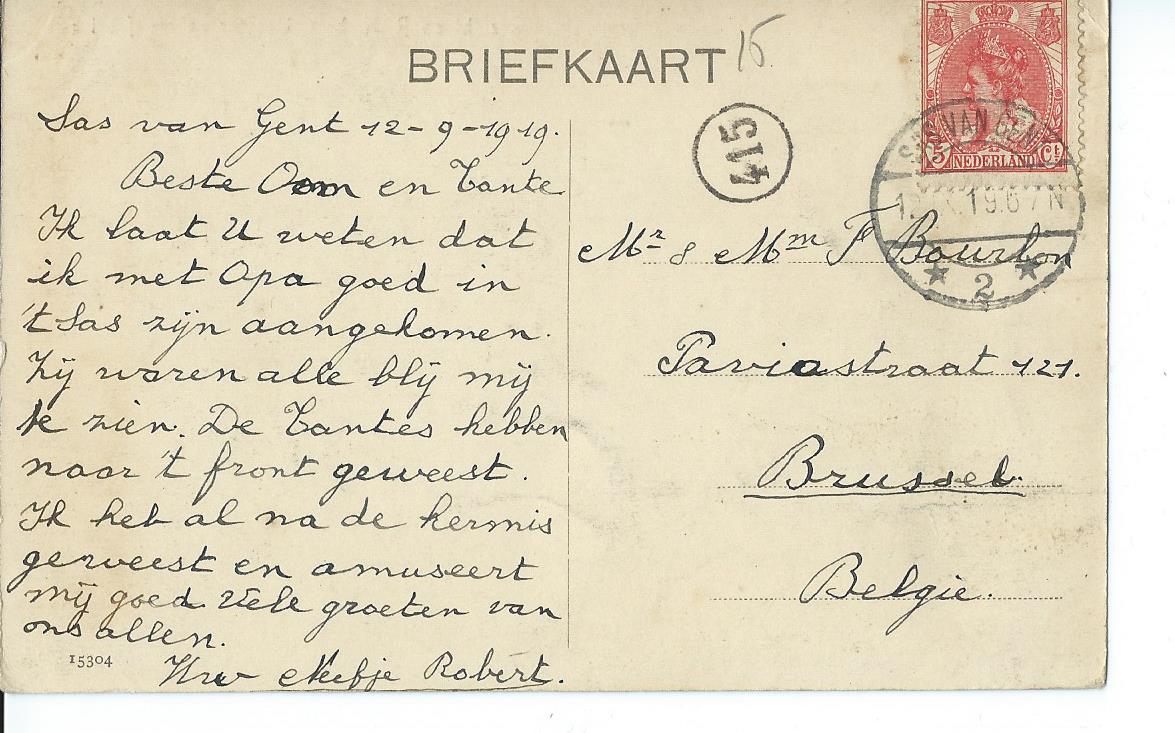 BRIEFKAART
15
Sas van Gent 12-9-1919.
Beste Oom en Tante
Ik laat U weten dat
ik met Opa goed in
't Sas zijn aangekomen.
Zij waren alle blij mij
te zien. De Tantes hebben
naar 't front geweest.
Ik heb al na de kermis
geweest en amuseert
mij goed. Vele groeten van
ons allen.
Uw Neefje Robert.
15304
415
5 NEDERLAND Ct
SAS VAN GENT
19.6 7 N
2
Mr & Mm F Bourlon
Paviastraat 121.
Brussel.
België.